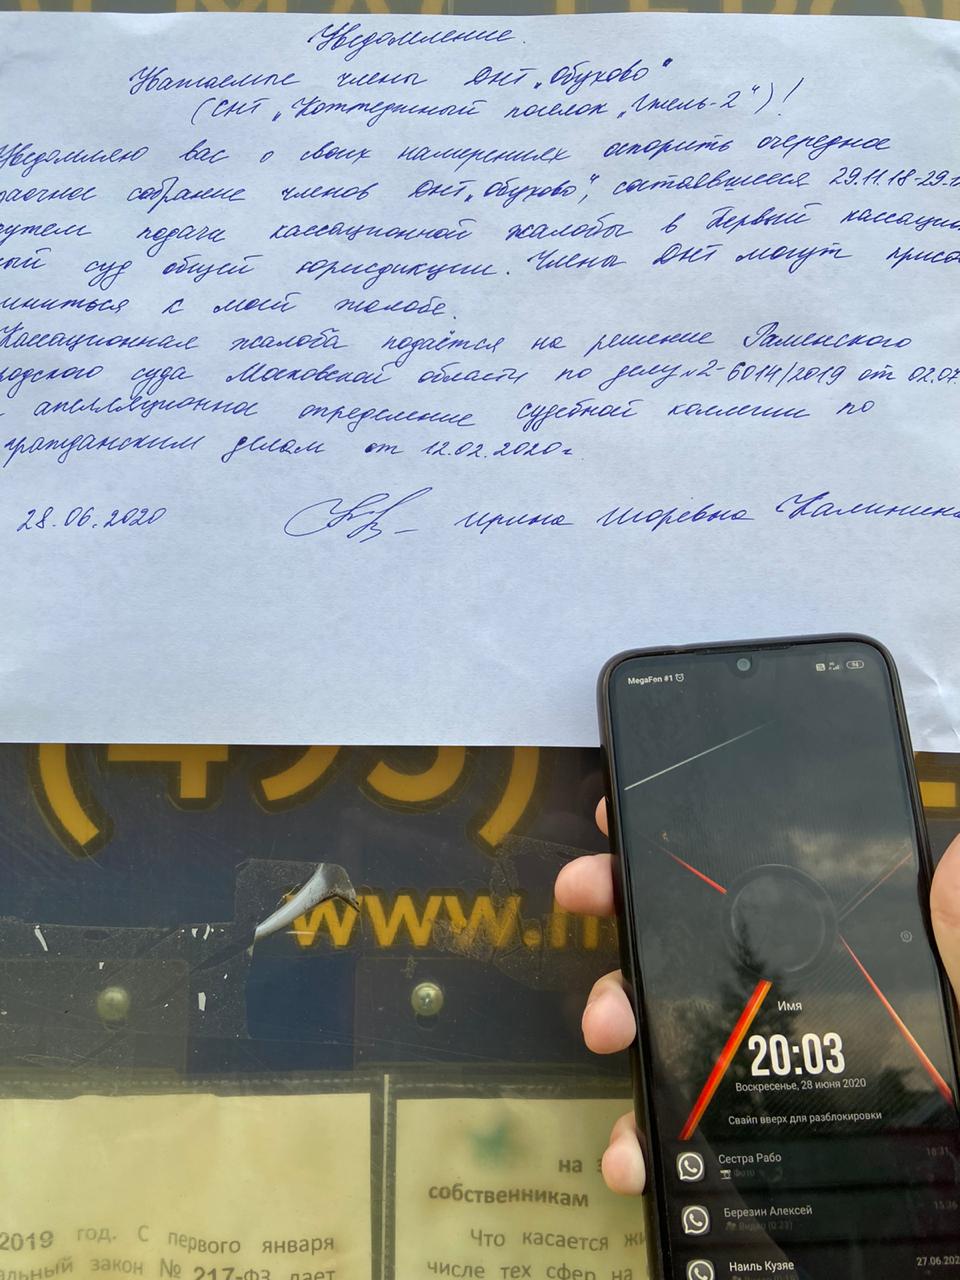 Уведомление.
Уважаемые члены ДНТ „Обухово"
(СНТ „Коттеджный поселок „Гжель-2")!
Уведомляю вас о своих намерениях оспорить очередное
заочное собрание членов ДНТ „Обухово", состоявшееся 29.11.18-29.1
путем подачи кассационной жалобы в Первый кассацио
ный суд общей юрисдикции. Члены ДНТ могут присо
диниться к моей жалобе.
Кассационная жалоба подаётся на решение Раменского
родского суда Московской области по делу №2-6014/2019 от 02.07.
и апелляционное определение судебной коллегии по
гражданским делам от 12.02.2020г.
28.06.2020 Ирина Игоревна Калинина
(495)
www.
MegaFon #1
94
Имя
20:03
Воскресенье, 28 июня 2020
Свайп вверх для разблокировки
Сестра Рабо 18:31
Фото
Березин Алексей 15:36
Видео (0:23)
Наиль Кузяе 27.06.202
на
собственникам
2019 год. С первого января
альный закон № 217-ФЗ дает
Что касается жи
числе тех сфер на